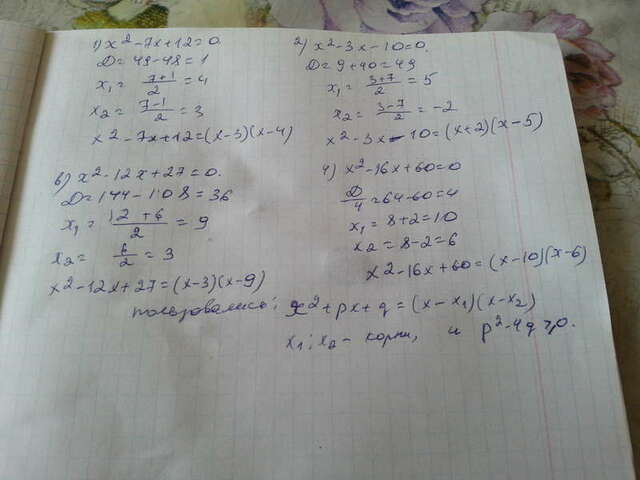 1) x² - 7x + 12 = 0.
D = 49 - 48 = 1
x₁ = (7+1)/2 = 4
x₂ = (7-1)/2 = 3
x² - 7x + 12 = (x-3)(x-4)
2) x² - 3x - 10 = 0.
D = 9 + 40 = 49
x₁ = (3+7)/2 = 5
x₂ = (3-7)/2 = -2
x² - 3x - 10 = (x+2)(x-5)
в) x² - 12x + 27 = 0.
D = 144 - 108 = 36
x₁ = (12+6)/2 = 9
x₂ = 6/2 = 3
x² - 12x + 27 = (x-3)(x-9)
4) x² - 16x + 60 = 0
D/4 = 64 - 60 = 4
x₁ = 8 + 2 = 10
x₂ = 8 - 2 = 6
x² - 16x + 60 = (x-10)(x-6)
пользовались: x² + px + q = (x-x₁)(x-x₂)
x₁; x₂ - корни, и p² - 4q ≥ 0.